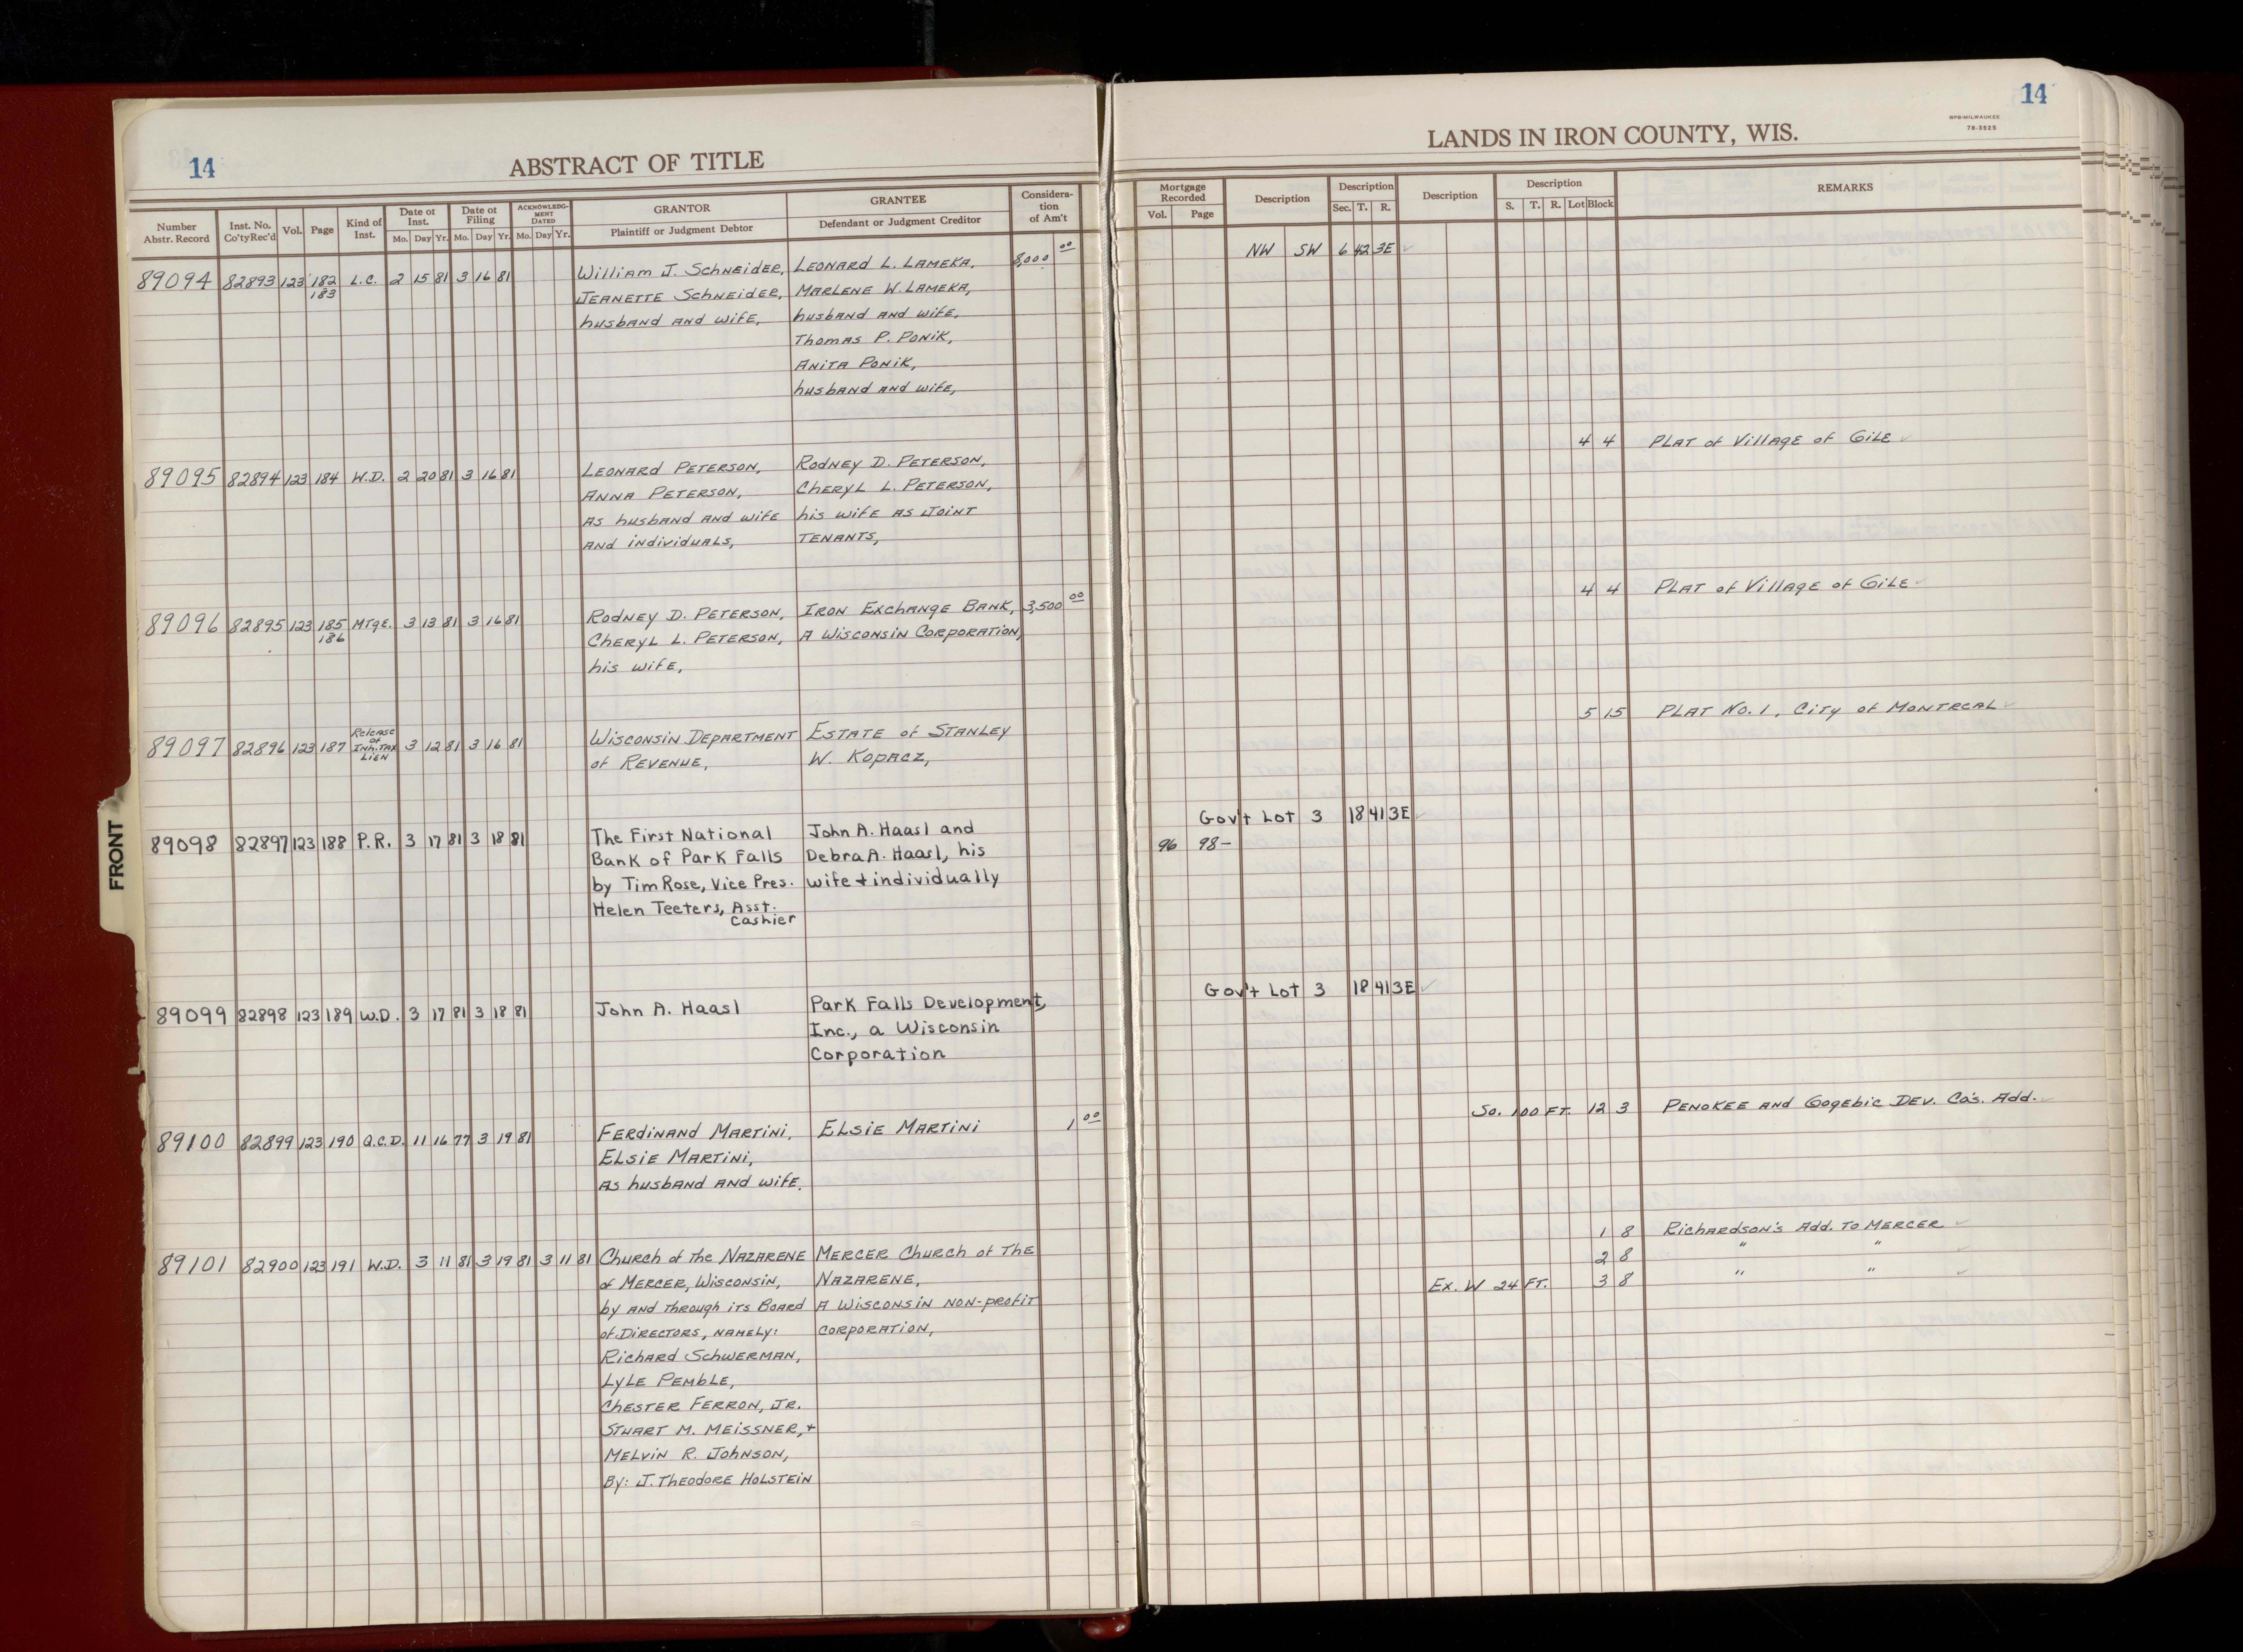 14
ABSTRACT OF TITLE
Number Abstr. Record
Inst. No. Co'tyRec'd
Vol.
Page
Kind of Inst.
Date of Inst.
Mo. Day Yr.
Date of Filing
Mo. Day Yr.
ACKNOWLEDG-MENT DATED
Mo. Day Yr.
GRANTOR
Plaintiff or Judgment Debtor
GRANTEE
Defendant or Judgment Creditor
Considera-tion of Am't
89094 82893 123 182 L.C. 2 15 81 3 16 81 William J. Schneider, Leonard L. Lameka, 8,000 00
183 Jeanette Schneider, Marlene W. Lameka,
husband and wife, husband and wife,
Thomas P. Ponik,
Anita Ponik,
husband and wife,
89095 82894 123 184 W.D. 2 20 81 3 16 81 Leonard Peterson, Rodney D. Peterson,
Anna Peterson, Cheryl L. Peterson,
as husband and wife his wife as joint
and individuals, tenants,
89096 82895 123 185 Mtge. 3 13 81 3 16 81 Rodney D. Peterson, Iron Exchange Bank, 3,500 00
186 Cheryl L. Peterson, a Wisconsin Corporation,
his wife,
89097 82896 123 187 Release of Inh. Tax Lien 3 12 81 3 16 81 Wisconsin Department Estate of Stanley
of Revenue, W. Kopacz,
89098 82897 123 188 P.R. 3 17 81 3 18 81 The First National John A. Haasl and
Bank of Park Falls Debra A. Haasl, his
by Tim Rose, Vice Pres. wife + individually
Helen Teeters, Asst.
Cashier
89099 82898 123 189 W.D. 3 17 81 3 18 81 John A. Haasl Park Falls Development,
Inc., a Wisconsin
Corporation
89100 82899 123 190 Q.C.D. 11 16 77 3 19 81 Ferdinand Martini, Elsie Martini 1 00
Elsie Martini,
as husband and wife.
89101 82900 123 191 W.D. 3 11 81 3 19 81 3 11 81 Church of the Nazarene Mercer Church of the
of Mercer, Wisconsin, Nazarene,
by and through its Board a Wisconsin non-profit
of Directors, namely: corporation,
Richard Schwerman,
Lyle Pemble,
Chester Ferron, Jr.
Stuart M. Meissner, +
Melvin R. Johnson,
By: J. Theodore Holstein
FRONT
14
LANDS IN IRON COUNTY, WIS.
WPB-MILWAUKEE
78-3525
Mortgage Recorded
Vol. Page
Description
Description
Sec. T. R.
Description
Description
S. T. R. Lot Block
REMARKS
NW SW 6 42 3E
4 4 Plat of Village of Gile
4 4 Plat of Village of Gile
5 15 Plat No. 1, City of Montreal
Gov't Lot 3 18 41 3E
96 98-
Gov't Lot 3 18 41 3E
So. 100 Ft. 12 3 Penokee and Gogebic Dev. Co's. Add.
1 8 Richardson's Add. to Mercer
2 8 " "
Ex. W 24 Ft. 3 8 " "